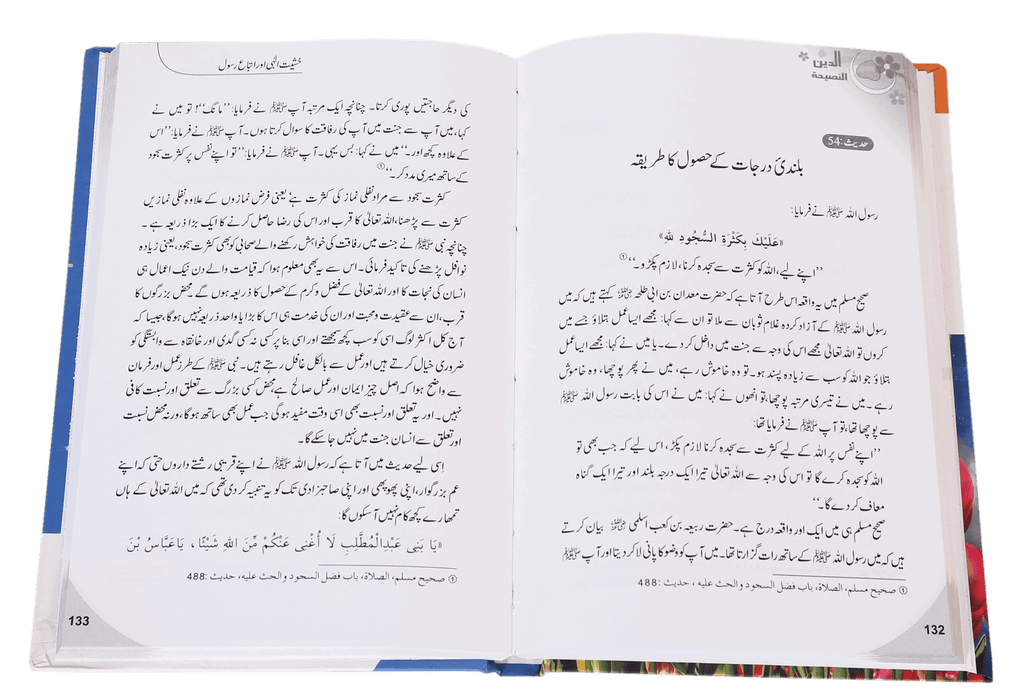 الدین
النصیحة
حدیث:54
بلندیٔ درجات کے حصول کا طریقہ
رسول اللہ ﷺ نے فرمایا:
«عَلَيْكَ بِكَثْرَةِ السُّجُودِ لِلّٰهِ»
’’اپنے لیے، اللہ کو کثرت سے سجدہ کرنا، لازم پکڑو۔‘‘①
صحیح مسلم میں یہ واقعہ اس طرح آتا ہے کہ حضرت معدان بن ابی طلحہ کہتے ہیں کہ میں
رسول اللہ ﷺ کے آزاد کردہ غلام ثوبان سے ملا تو ان سے کہا: مجھے ایسا عمل بتلاؤ جسے میں
کروں تو اللہ تعالیٰ مجھے اس کی وجہ سے جنت میں داخل کر دے۔ یا میں نے کہا: مجھے ایسا عمل
بتلاؤ جو اللہ کو سب سے زیادہ پسند ہو۔ تو وہ خاموش رہے، میں نے پھر پوچھا، وہ خاموش
رہے۔ میں نے تیسری مرتبہ پوچھا، تو انھوں نے کہا: میں نے اس کی بابت رسول اللہ ﷺ
سے پوچھا تھا، تو آپ ﷺ نے فرمایا تھا:
’’اپنے نفس پر اللہ کے لیے کثرت سے سجدہ کرنا لازم پکڑ، اس لیے کہ جب بھی تو
اللہ کو سجدہ کرے گا تو اس کی وجہ سے اللہ تعالیٰ تیرا ایک درجہ بلند اور تیرا ایک گناہ
معاف کر دے گا۔‘‘
صحیح مسلم ہی میں ایک اور واقعہ درج ہے۔ حضرت ربیعہ بن کعب اسلمی بیان کرتے
ہیں کہ میں رسول اللہ ﷺ کے ساتھ رات گزارتا تھا۔ میں آپ کو وضو کا پانی لا کر دیتا اور آپ ﷺ
① صحيح مسلم، الصلاة، باب فضل السجود والحث عليه ، حديث :488
132
خشیت الٰہی اور اتباع رسول
کی دیگر حاجتیں پوری کرتا۔ چنانچہ ایک مرتبہ آپ ﷺ نے فرمایا: ’’مانگ‘‘! تو میں نے
کہا، میں آپ سے جنت میں آپ کی رفاقت کا سوال کرتا ہوں۔ آپ ﷺ نے فرمایا: ’’اس
کے علاوہ کچھ اور۔‘‘ میں نے کہا: بس یہی۔ آپ ﷺ نے فرمایا: ’’تو اپنے نفس پر کثرت سجود
کے ساتھ میری مدد کر۔‘‘①
کثرت سجود سے مراد نفلی نماز کی کثرت ہے، یعنی فرض نمازوں کے علاوہ نفلی نمازیں
کثرت سے پڑھنا، اللہ تعالیٰ کا قرب اور اس کی رضا حاصل کرنے کا ایک بڑا ذریعہ ہے۔
چنانچہ نبی ﷺ نے جنت میں رفاقت کی خواہش رکھنے والے صحابی کو بھی کثرت سجود، یعنی زیادہ
نوافل پڑھنے کی تاکید فرمائی۔ اس سے یہ بھی معلوم ہوا کہ قیامت والے دن نیک اعمال ہی
انسان کی نجات کا اور اللہ تعالیٰ کے فضل و کرم کے حصول کا ذریعہ ہوں گے۔ محض بزرگوں کا
قرب، ان سے عقیدت و محبت اور ان کی خدمت ہی اس کا بڑا یا واحد ذریعہ نہیں ہوگا، جیسا کہ
آج کل اکثر لوگ اسی کو سب کچھ سمجھتے اور اسی بنا پر کسی نہ کسی گدی اور خانقاہ سے وابستگی کو
ضروری خیال کرتے ہیں اور عمل سے بالکل غافل رہتے ہیں۔ نبی ﷺ کے طرز عمل اور فرمان
سے واضح ہوا کہ اصل چیز ایمان اور عمل صالح ہے، محض کسی بزرگ سے تعلق اور نسبت کافی
نہیں۔ اور یہ تعلق اور نسبت بھی اسی وقت مفید ہوگی جب عمل بھی ساتھ ہوگا، ورنہ محض نسبت
اور تعلق سے انسان جنت میں نہیں جا سکے گا۔
اسی لیے حدیث میں آتا ہے کہ رسول اللہ ﷺ نے اپنے قریبی رشتے داروں حتی کہ اپنے
عم بزرگوار، اپنی پھوپھی اور اپنی صاحبزادی تک کو یہ تنبیہ کر دی تھی کہ میں اللہ تعالیٰ کے ہاں
تمھارے کچھ کام نہیں آ سکوں گا:
«يَا بَنِي عَبْدِالْمُطَّلِبِ لَا أُغْنِي عَنْكُمْ مِّنَ اللّٰهِ شَيْئًا ، يَاعَبَّاسُ بْنَ
① صحيح مسلم، الصلاة، باب فضل السجود والحث عليه، حديث :488
133